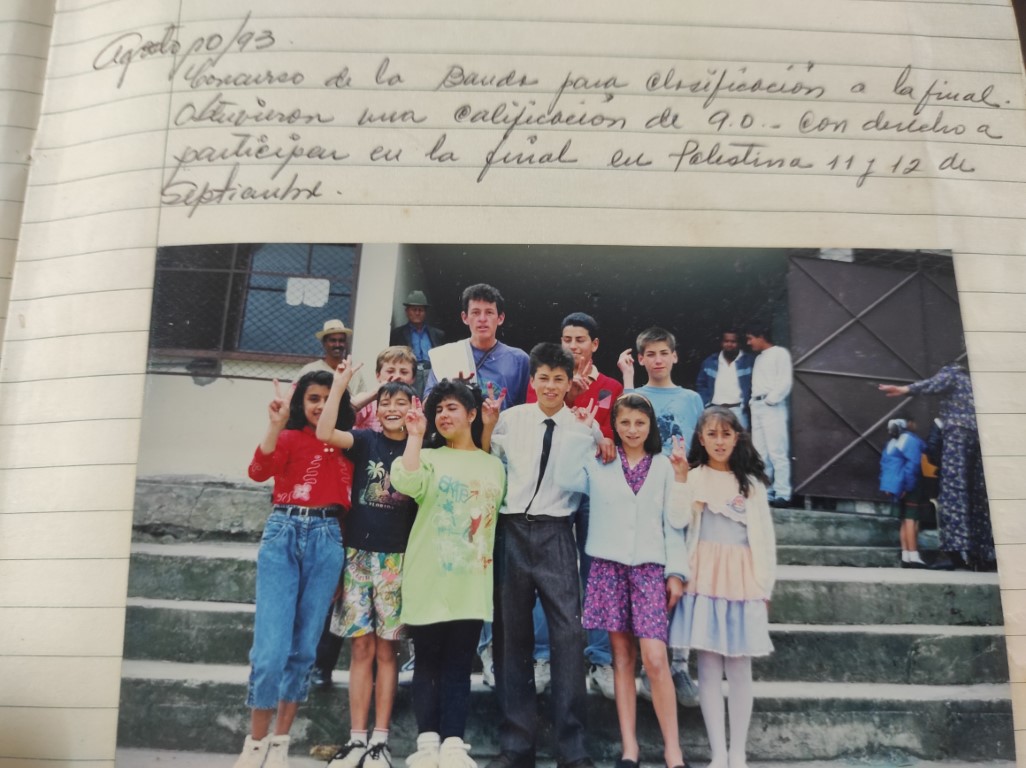 Agosto 10/93.
Concurso de la Banda para clasificación a la final.
Obtuvieron una calificación de 9.0.- Con derecho a
participar en la final en Palestina 11 y 12 de
Septiembre.